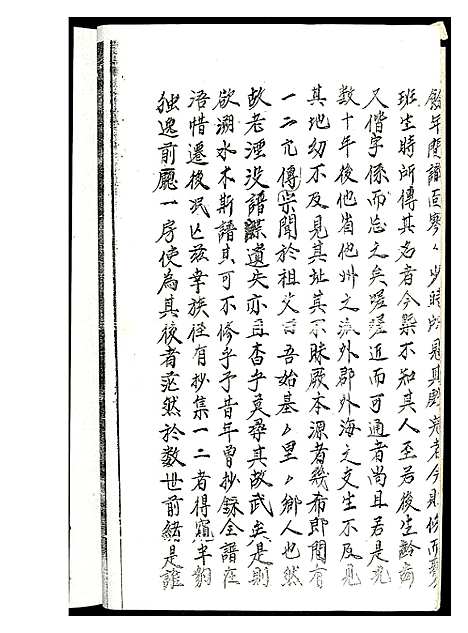 餘年間譜面寥々少時所見其殿宛者今則條而
班生時所傳其名者今槩不知其人至若後生齡齒
又偕字係而忘之矣嗟嗟近而可通者尚且若是况
数十年後他省他州之派外郡外海之支生不及見
其地幼不及見其址其不昧厥本源者幾希即間有
一二冗傳宗聞於祖父言吾始基々里々鄉人也然
故老湮没譜諜遺失亦且杳乎莫尋其故武矣是則
欲溯水木斯譜其可不修乎予昔年曾抄錄全譜在
浯惜遷後泯亡兹幸族侄有抄集一二者得窺半豹
独逸前廳一房使為其後者茫然於数世前緒是誰